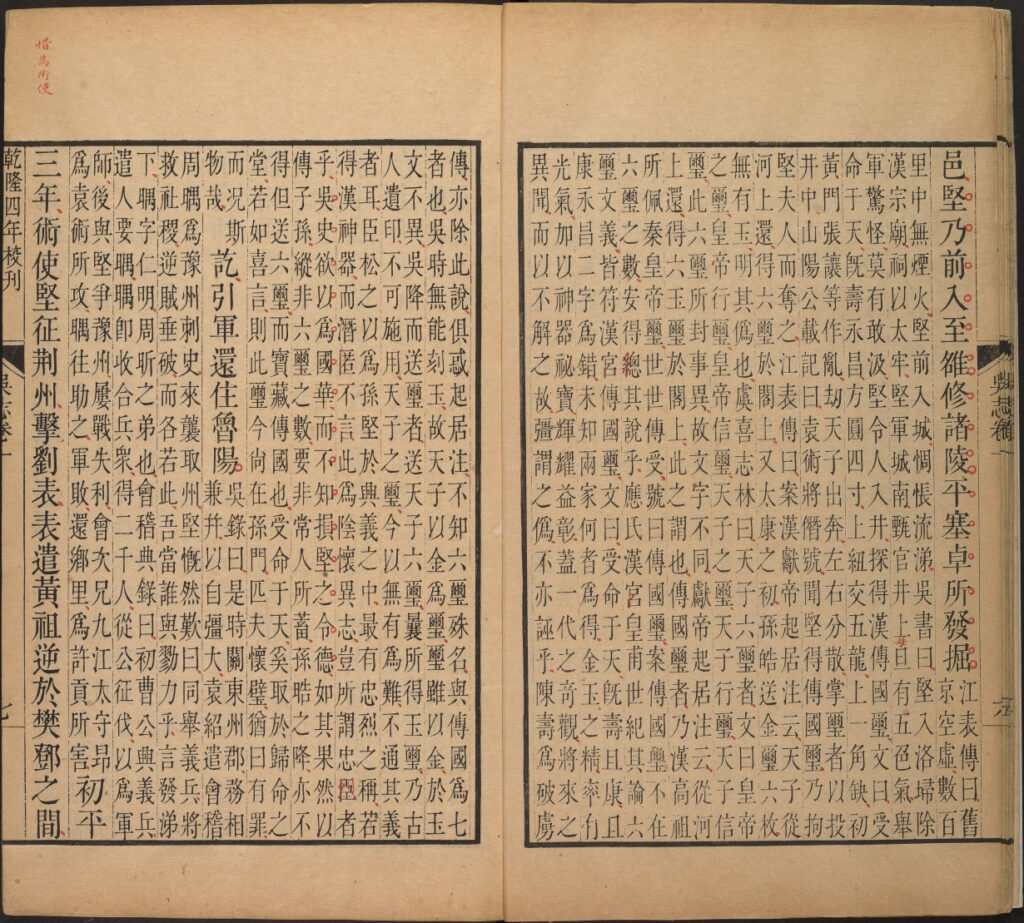 邑堅乃前入至雒修諸陵平塞卓所發掘
江表傳曰舊
京空虛數百
里中無煙火堅前入城惆悵流涕吳書曰堅入洛埽除
漢宗廟祠以太牢堅軍城南甄官井上旦有五色氣舉
每
軍驚怪莫有敢汲堅令人入井探得漢傳國璽文曰受
命于天旣壽永昌方圓四寸上紐交五龍上一角缺初
黃門張讓等作亂劫天子出奔左右分散掌璽者以投
井中山陽公載記曰袁術將僭號聞堅得傳國璽乃拘
堅夫人而奪之江表傳曰案漢獻帝起居注云天子從
河上還得六璽於閣上又太康之初孫皓送金璽六枚
無有玉明其僞也虞喜志林曰天子六璽者文曰皇帝
之璽皇帝行璽皇帝信璽天子之璽天子行璽天子信
璽此六璽所封事異故文字不同獻帝起居注云從河
上還得六玉璽於閣上此之謂也傳國璽者乃漢高祖
所佩秦皇帝璽世世傳受號曰傳國璽案傳國璽不在
六璽之數安得總其說乎應氏漢宮皇甫世紀其論六
璽文義皆符漢宮傳國璽文曰受命于天旣壽且康且
康永昌二字爲錯未知兩家何者爲得金玉之精率有
光氣加以神器祕寶輝耀益彰蓋一代之奇觀將來之
異聞而以不解之故彊謂之僞不亦誣乎陳壽爲破虜
惜爲術使
傳亦除此說俱惑起居注不知六璽殊名與傳國爲七
者也吳時無能刻玉故天子以金爲璽璽雖以金於玉
文不異吳降而送璽者送天子六璽曩所得玉璽乃古
人遺印不可施用天子之璽今以無有爲難不通其義
者耳臣松之以爲孫堅於興義之中最有忠烈之稱若
得漢神器而潛匿不言此爲陰懷異志豈所謂忠臣者
乎吳史欲以爲國華而不知損堅之令德如其果然以
傳子孫縱非六璽之數要非常人所蓄孫皓之降亦不
得但送六璽而寶藏傳國也受命于天奚取於歸命之
堂若如喜言則此璽今尚在孫門匹夫懷璧猶曰有罪
而況斯
物哉
訖引軍還住魯陽
吳錄曰是時關東州郡務相
兼幷以自彊大袁紹遣會稽
周㬂爲豫州刺史來襲取州堅慨然歎曰同舉義兵將
救社稷逆賊垂破而各若此吾當誰與戮力乎言發涕
下㬂字仁明周昕之弟也會稽典錄曰初曹公興義兵
遣人要㬂㬂卽收合兵衆得二千人從公征伐以爲軍
師後與堅爭豫州屢戰失利會次兄九江太守昂
爲袁術所攻㬂往助之軍敗還鄉里爲許貢所害
初平
三年術使堅征荆州擊劉表表遣黃祖逆於樊鄧之間
乾隆四年校刊
吳志卷一
七